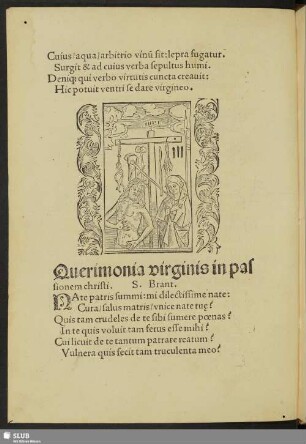 Cuius/aqua/arbitrio vinũ fit:lepra fugatur.
Surgit & ad cuius verba sepultus humi.
Deniq; qui verbo virtutis cuncta creauit:
Hic potuit ventri se dare virgineo.
Querimonia virginis in pas
sionem christi. S. Brant.
NAte patris summi: mi dilectissime nate:
Cura/salus matris/vnice nate tuę?
Quis tam crudeles de te sibi sumere pœnas?
In te quis voluit tam ferus esse mihi?
Cui licuit de te tantum patrare reatum?
Vulnera quis fecit tam truculenta meo?
SLUB